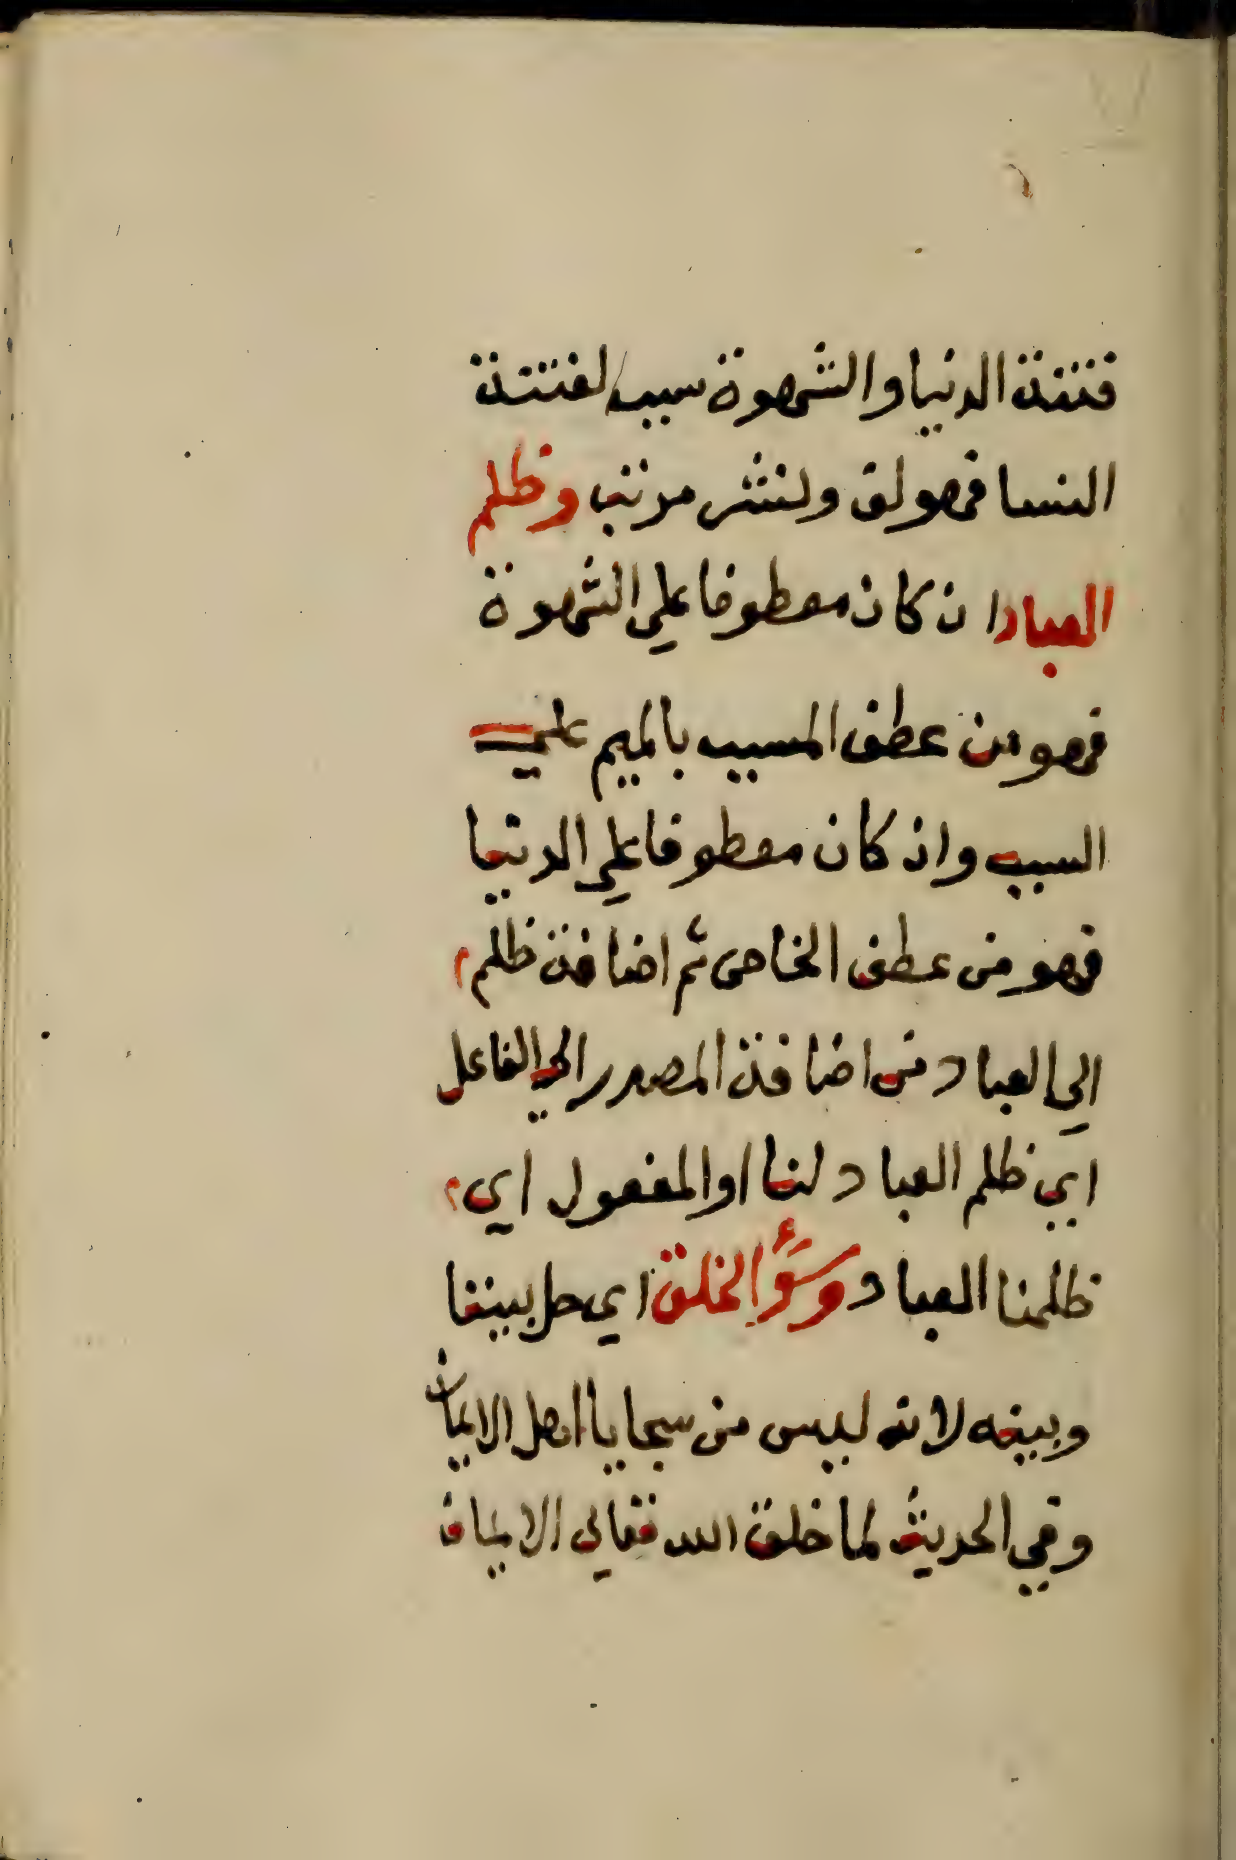 فتنة الدنيا والشهوة سبب لفتنة
النسا فهو لق ونشر مرتب وظلم
العباد ان كان معطوفا علي الشهوة
فهو من عطف المسبب بالميم علي
السبب وان كان معطوفا علي الدنيا
فهو من عطف الخاص ثم اضافة ظلم
الي العباد من اضافة المصدر الي الفاعل
اي ظلم العباد لنا او المفعول اي
ظلمنا العباد وسؤ الخلق اي حل بيننا
وبينه لانه ليس من سجايا اهل الايمان
وفي الحديث لما خلق الله تعالي الايمان